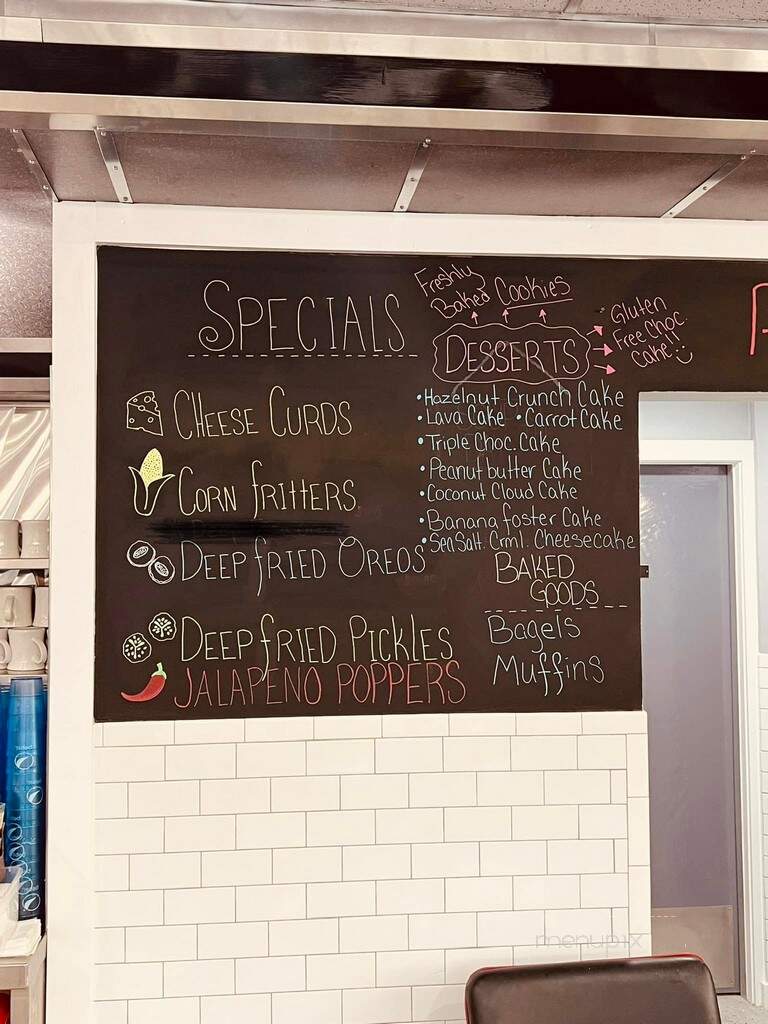 SPECIALS
CHEESE CURDS
CORN FRITTERS
DEEP FRIED OREOS
DEEP FRIED PICKLES
JALAPENO POPPERS
Freshly
Baked Cookies
DESSERTS
Gluten
Free Choc.
Cake!!
• Hazelnut Crunch Cake
• Lava Cake • Carrot Cake
• Triple Choc. Cake
• Peanut butter Cake
• Coconut Cloud Cake
• Banana foster Cake
• Sea Salt. Crml. Cheesecake
BAKED
GOODS
Bagels
Muffins
menupix